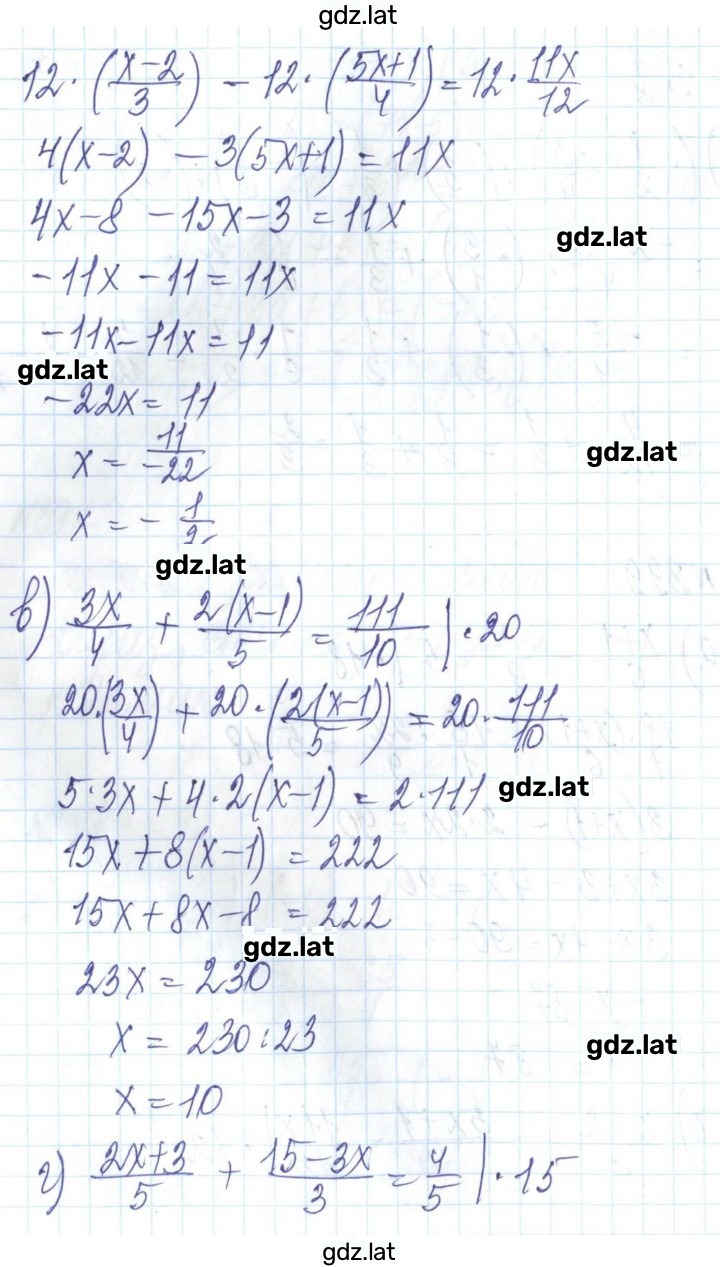 gdz.lat
12·((x-2)/3) - 12·((5x+1)/4) = 12·11x/12
4(x-2) - 3(5x+1) = 11x
4x-8 - 15x-3 = 11x
gdz.lat
-11x - 11 = 11x
-11x-11x = 11
gdz.lat
-22x = 11
x = 11/-22
gdz.lat
x = - 1/2
gdz.lat
в) 3x/4 + 2(x-1)/5 = 111/10 |·20
20·(3x/4) + 20·(2(x-1)/5) = 20·111/10
5·3x + 4·2(x-1) = 2·111
gdz.lat
15x+8(x-1) = 222
15x+8x-8 = 222
gdz.lat
23x = 230
x = 230:23
gdz.lat
x = 10
г) (2x+3)/5 + (15-3x)/3 = 4/5 |·15
gdz.lat